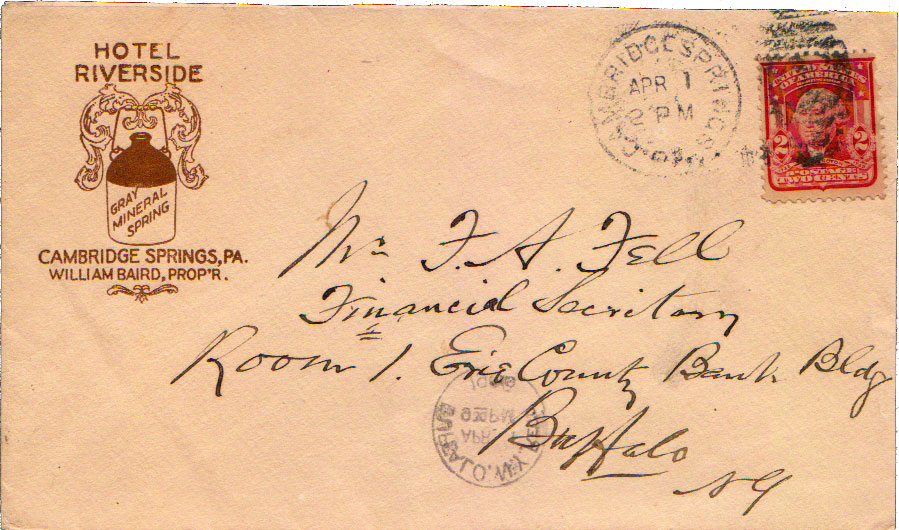 HOTEL
RIVERSIDE
GRAY
MINERAL
SPRING
CAMBRIDGE SPRINGS, PA.
WILLIAM BAIRD, PROP'R.
CAMBRIDGE SPRINGS
APR 1
2 PM
UNITED STATES
OF AMERICA
2 2
POSTAGE
TWO CENTS
Mr. F. A. Fell
Financial Secretary
Room 1. Erie County Bank Bldg
Buffalo
NY
BUFFALO, N.Y.
APR